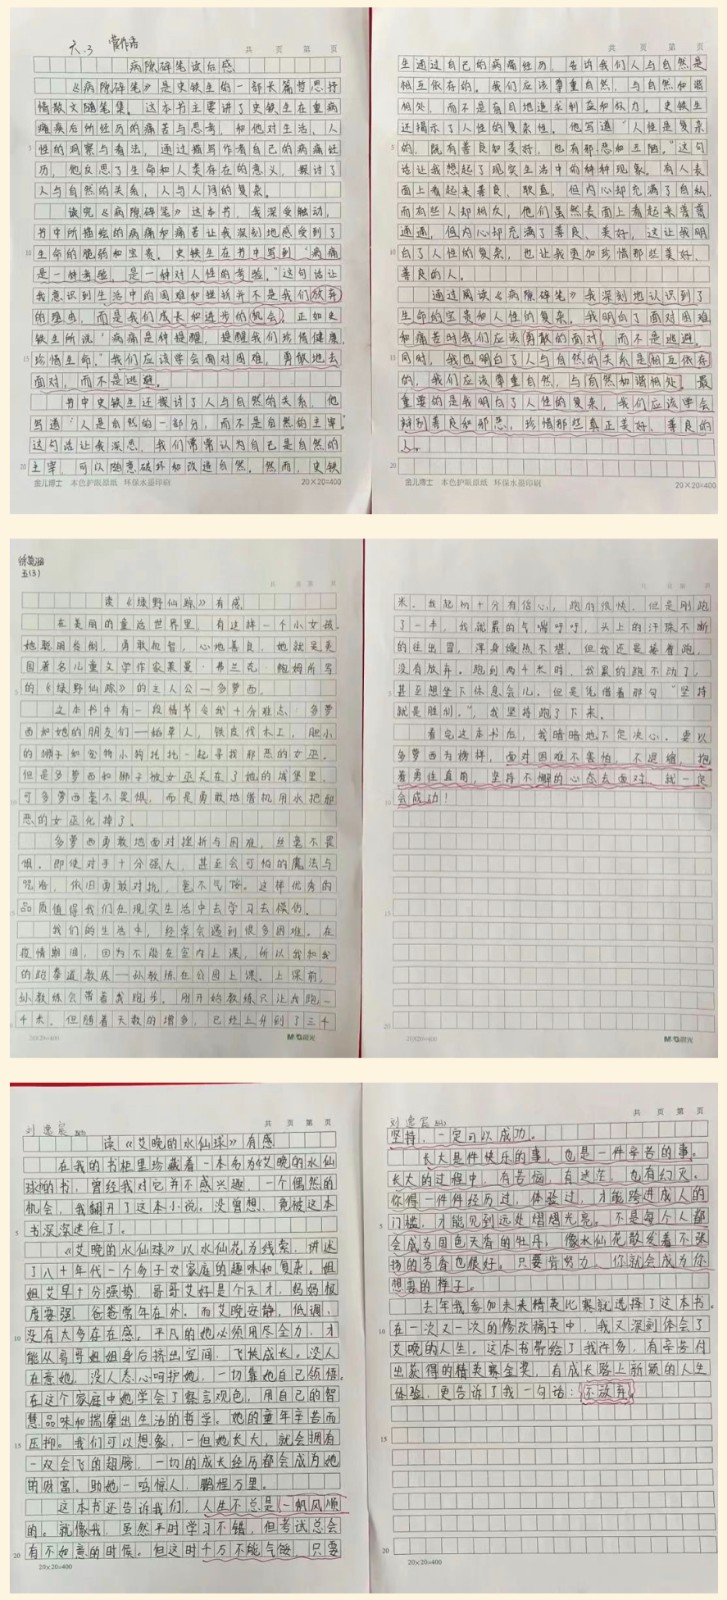 六.3 常作語
共 页 第 页
病隙碎笔读后感
《病隙碎笔》是史铁生的一部长篇哲思抒
情散文随笔集。这本书主要讲了史铁生在重病
缠身后所经历的痛苦与思考，和他对生活、人
性的观察与看法，通过描写作者自己的病痛经
历，他反思了生命和人类存在的意义，探讨了
人与自然的关系，人与人间的复杂。
读完《病隙碎笔》这本书，我深受触动，
书中所描绘的病痛和痛苦让我深刻地感受到了
生命的脆弱和宝贵。史铁生在书中写到“病痛
是一种考验，是一种对人性的考验。”这句话让
我意识到生活中的困难和挫折并不是我们放弃
的理由，而是我们成长和进步的机会。正如史
铁生所说“病痛是种提醒，提醒我们珍惜健康，
珍惜生命。”我们应该学会面对困难，勇敢地去
面对，而不是逃避。
书中史铁生还探讨了人与自然的关系，他
写道“人是自然的一部分，而不是自然的主宰。”
这句话让我深思，我们常常认为自己是自然的
主宰，可以随意破坏和改造自然。然而，史铁
金儿博士 本色护眼原纸 环保水墨印刷
20×20=400
共 页 第 页
生通过自己的病痛经历，告诉我们人与自然是
相互依存的。我们应该尊重自然，与自然和谐
相处，而不是盲目地追求利益和权力。史铁生
还揭示了人性的复杂性。他写道“人性是复杂
的，既有善良和美好，也有邪恶和丑陋。”这句
话让我想起了现实生活中的种种现象。有人表
面上看起来善良、耿直，但内心却充满了自私，
而有些人却相反，他们虽然表面上看起来普普
通通，但内心却充满了善良、美好，这让我明
白了人性的复杂，也让我更加珍惜那些美好、
善良的人。
通过阅读《病隙碎笔》我深刻地认识到了
生命的宝贵和人性的复杂。我明白了面对困难
和痛苦时我们应该勇敢的面对，而不是逃避。
同时，我也明白了人与自然的关系是相互依存
的，我们应该尊重自然，与自然和谐相处。最
重要的是我明白了人性的复杂，我们应该学会
辩别善良和邪恶，珍惜那些真正美好、善良的
人。
金儿博士 本色护眼原纸 环保水墨印刷
20×20=400
五(3)
读《绿野仙踪》有感
在美丽的童话世界里，有这样一个小女孩。
她聪明伶俐，勇敢机智，心地善良，她就是美
国著名儿童文学作家莱曼·弗兰克·鲍姆所写
的《绿野仙踪》的主人公—多萝西。
这本书中有一段情节令我十分难忘：多萝
西和她的朋友们—稻草人，铁皮伐木工，胆小
的狮子和宠物小狗托托一起寻找邪恶的女巫。
但是多萝西和狮子被女巫关在了她的城堡里，
可多萝西毫不畏惧，而是勇敢地借机用水把邪
恶的女巫化掉了。
多萝西勇敢地面对挫折与困难，丝毫不畏
惧。即使对手十分强大，甚至会可怕的魔法与
咒语，依旧勇敢对抗，毫不气馁。这样优秀的
品质值得我们在现实生活中去学习去模仿。
我们的生活中，经常会遇到很多困难。在
疫情期间，因为不能在室内上课，所以我和我
的跆拳道教练—孙教练在公园上课。上课前，
孙教练会带着我跑步。刚开始教练只让我跑一
千米，但随着天数的增多，已经上升到了三千
20X20=400
M&G晨光
米。我起初十分有信心，跑的很快，但是刚跑
了一半，我就累的气喘吁吁，头上的汗珠不断
的往出冒，浑身燥热不堪。但我还是接着跑，
没有放弃。跑到两千米时，我累的跑不动了，
甚至想坐下休息会儿，但是凭借着那句“坚持
就是胜利。”，我坚持跑了下来。
看完这本书后，我暗暗地下定决心，要以
多萝西为榜样，面对困难不害怕，不退缩，抱
着勇往直前，坚持不懈的心态去面对，我一定
会成功！
20X20=400
M&G晨光
刘逸宸
共 页 第 页
读《艾晚的水仙球》有感
在我的书柜里珍藏着一本名为《艾晚的水仙
球》的书，曾经我对它并不感兴趣。一个偶然的
机会，我翻开了这本小说。没曾想，竟被这本
书深深迷住了。
《艾晚的水仙球》以水仙花为线索，讲述
了八十年代一个多子女家庭的趣味和复杂。姐
姐艾早十分强势，哥哥艾好是个天才，妈妈极
度要强，爸爸常年在外。而艾晚安静，低调，
没有太多存在感。平凡的她必须用尽全力，才
能从哥哥姐姐身后挤出空间，飞快成长。没人
在意她，没人悉心呵护她，一切靠她自己领悟。
在这个家庭中她学会了察言观色，用自己的智
慧品味和揣摩出生活的哲学。她的童年辛苦而
压抑。我们可以想象，一但她长大，就会拥有
一双会飞的翅膀，一切的成长经历都会成为她
的财富。助她一鸣惊人，鹏程万里。
这本书还告诉我们，人生不总是一帆风顺
的。就像我，虽然平时学习不错，但考试总会
有不如意的时候。但这时千万不能气馁，只要
20×20=400
刘逸宸
共 页 第 页
坚持，一定可以成功。
长大是件快乐的事，也是一件辛苦的事。
长大的过程中，有苦恼，有迷茫，也有幻灭。
你得一件件经历过，体验过，才能跨进成人的
门槛，才能见到远处熠熠光亮。不是每个人都
会成为国色天香的牡丹，像水仙花散发着不张
扬的芳香也很好。只要肯努力，你就会成为你
想要的样子。
去年我参加未来精英比赛就选择了这本书。
在一次又一次的修改稿子中，我又深刻体会了
艾晚的人生。这本书带给了我许多，有辛苦付
出获得的精英赛金奖，有成长路上新颖的人生
体验，更告诉了我一句话：不放弃。
20×20=400